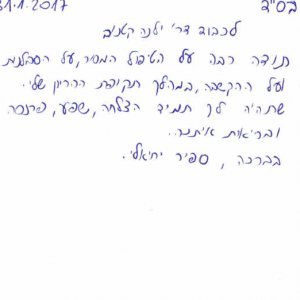 בס"ד
31.1.2017
לכבוד דר' ילנה קטנוב
תודה רבה על הטיפול המסור, על הסבלנות
ועל ההקשבה, במהלך תקופת ההריון שלי.
שתהיה לך תמיד הצלחה, שפע, פרנסה
ובריאות איתנה.
בברכה, ספיר יחיאלי.